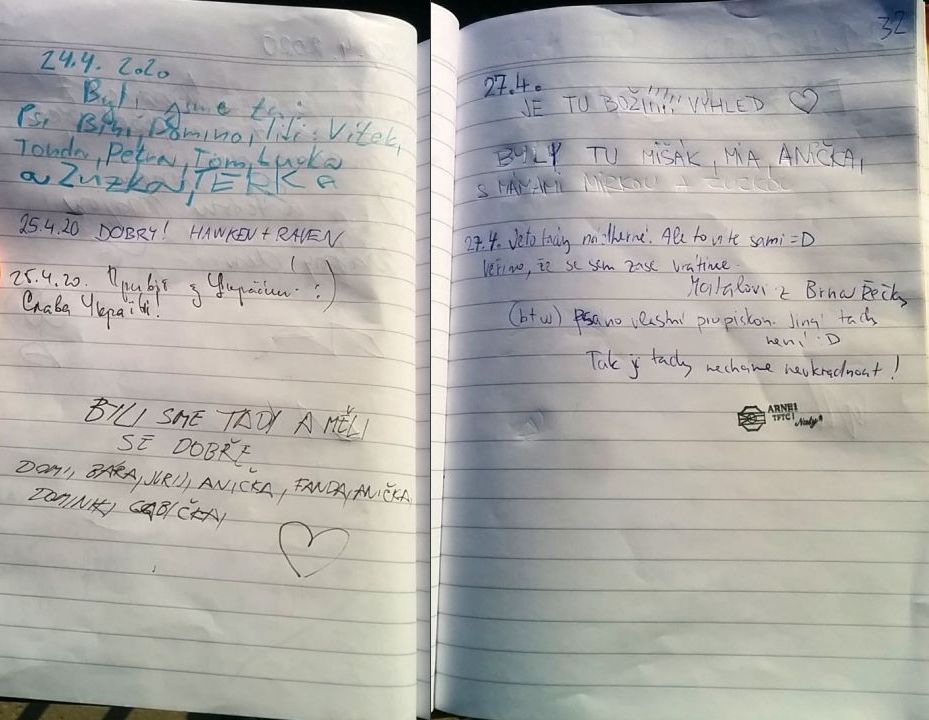 24.4. 2020
Byli sme tady
Psi Brit, Domino, Vítek,
Tonda, Petra, Tom, Lucka
a Zuzka, TERKA
25.4.20 DOBRÝ! HAWKEN + RAVEN
25.4.20. Привіт з України. :)
Слава Україні!
BYLI SME TADY A MĚLI
SE DOBŘE
DOMI, BÁRA, JURIJ, ANIČKA, FANDA, ANIČKA
DOMINIK, GABIČKA,
32
27.4.
JE TU BOŽÍ!!!!! VÝHLED ♡
BYLY TU MIŠÁK, MIA, ANIČKA,
S MAMAMI MIRKOU + ZUZKOU
27.4. Je to tady nádherné. Ale to víte sami =D
Věříme, že se sem zase vrátíme.
z Brna Řečky
(btw) Psáno vlastní propiskou. Jiná tady
není :D
Tak ji tady necháme neukradnout!
ARNE1
TFTC!